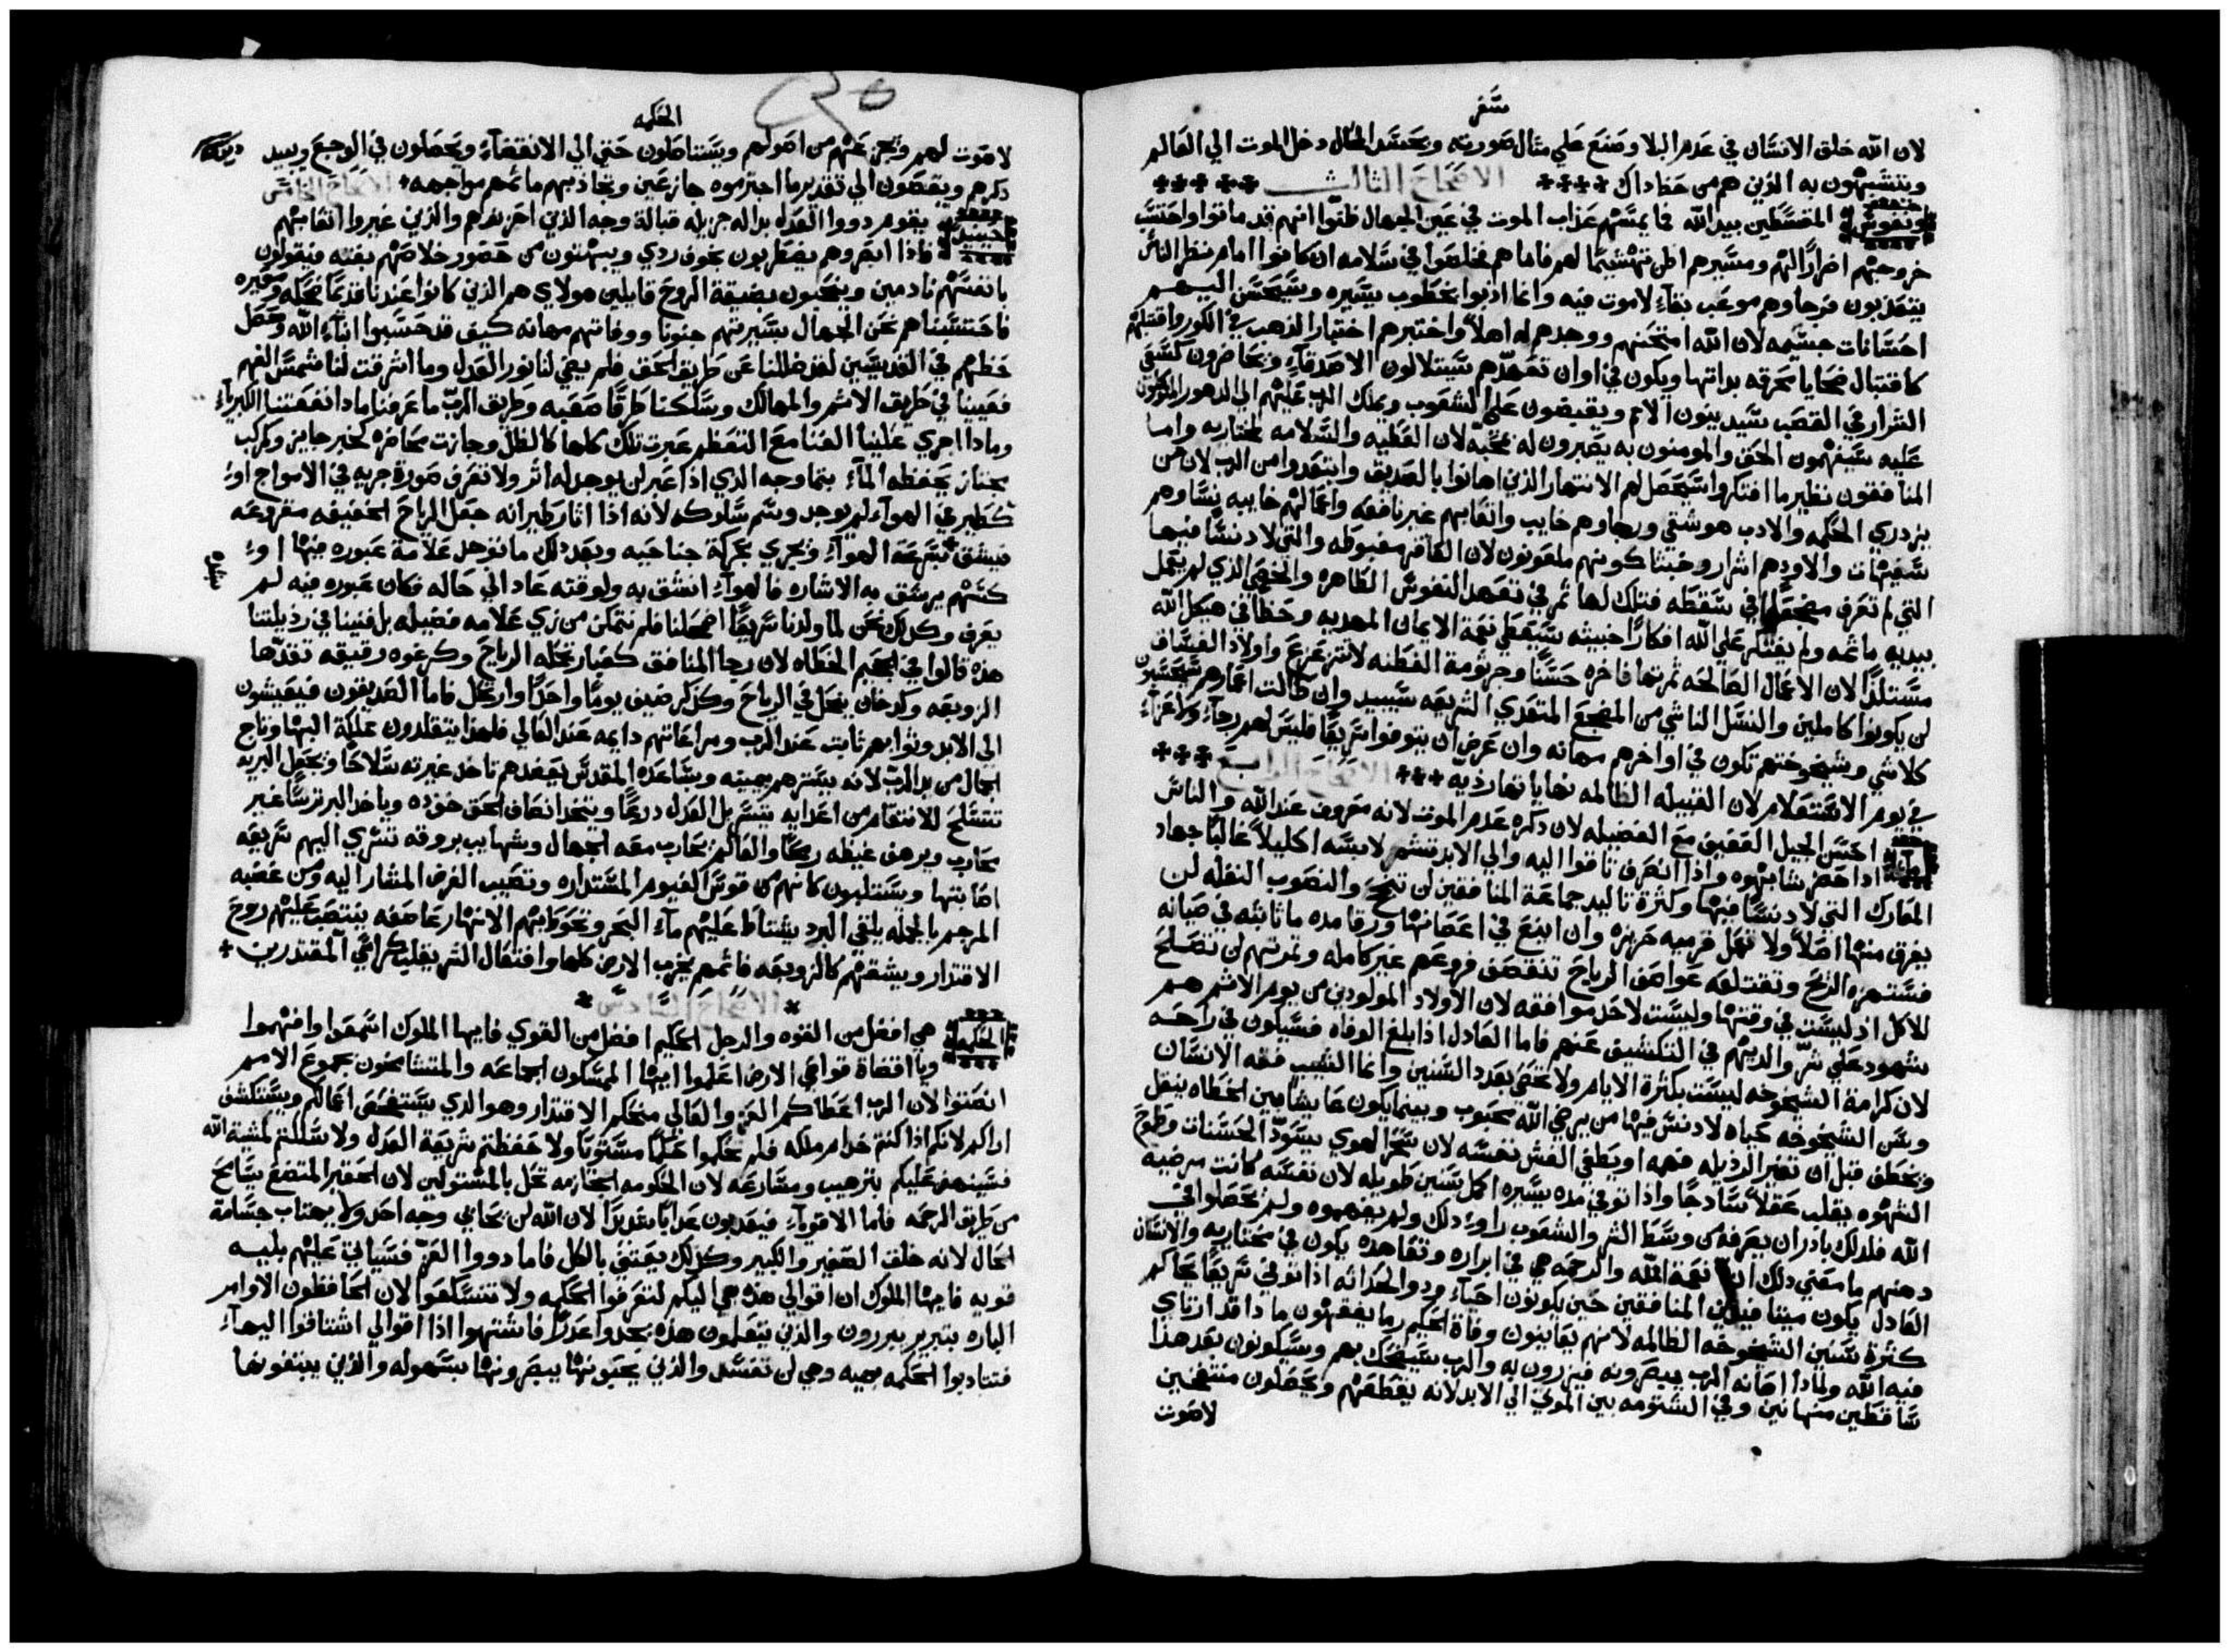 سفر
لان الله خلق الانسان في عدم البلا وصنع علي مثال صورته وبحسد المحال دخل الموت الي العالم
ويتشبهون به الذين هم من حظ داك الاصحاح الثالث
ونفوس المقسطين بيد الله فما يمسهم عذاب الموت في عين الجهال ظنوا انهم قد ماتوا واحتسب
خروجهم اضرارًا لهم ومسيرهم تهشيمًا لهم فاما هم فحلصوا في سلامه ان كانوا امام نظر الناس
يتعذبون فرجاوهم موعب بقاء لاموت فيه وانما اذبوا بخطوب يسيره وسيحسن اليهم
احسانات جسيمه لان الله امتحنهم ووجدهم له اهلاً واختبرهم اختبار الذهب في الكور واقتبلهم
كاقتبال ضحايا محرقه بداتها ويكون في اوان تعهدهم سيتلالون الاصدقاء ويحاضرون كسعي
الشرار في القصب سيدينون الامم ويقبضون علي الشعوب ويملك الرب عليهم الي الدهور المتوكلون
عليه سيفهمون الحق والمومنون به يصبرون له بمحبة لان العطيه والسلامه لمختاريه واما
المنافقون نظير ما افتكروا سيحصل لهم الانتهار الذين اهانوا بالصديق وابتعدوا من الرب لان من
يزدري الحكمه والادب هو شقي ورجاوهم خايب واتعابهم غير نافعه واعمالهم خايبه نساوهم
سفيهات واولادهم اشرار وخبثا كونهم ملعونون لان العاقر مغبوطه والتي لا دنسًا فيها
التي لم تعرف مضجعًا في سقطه فتلك لها ثمر في تعهد النفوس الطاهره والخصي الذي لم يعمل
بيديه ماثمه ولم يفتكر علي الله افكارًا خبيثه سيعطي نعمة الايمان المهديه وحظًا في هيكل الله
مستلذًا لان الاعمال الصالحه ثمرتها فاخره حسنًا وجرثومة الفطنه لا تتزعزع واولاد الفساق
لن يكونوا كاملين والنسل الناشي من المضجع المتعدي الشريعه سيبيد وان طالت اعمارهم سيحتسبون
كلاشي وشيخوختهم تكون في اواخرهم مهانه وان عرض ان يتوفوا سريعًا فليس لهم رجاء ولا عزاء
في يوم الاستعلام لان القبيله الظالمه نهاياتها رديه الاصحاح الرابع
ما احسن الجيل العفيف مع الفضيله لان ذكره عدم الموت لانه معروف عند الله والناس
اذا حضر شابهوه واذا انصرف تاقوا اليه والي الابد تتشم لابسه اكليلاً غالبًا جهاد
المعارك التي لا دنسًا فيها وكثرة تاليد جماعة المنافقين لن تنجح والنصوب النغله لن
يعرق منها اصلاً ولا تعمل قرميه حريزه وان اينع في اغصانها ورقا مده ما ثابته في صبانه
فستهزه الريح وتقتلعه عواصف الرياح تنقصف فروعهم غير كامله وثمرتهم لن تصلح
للاكل اذ ليست في وقتها وليست لاحد موافقه لان الاولاد المولودين من يوم الاثم هم
شهود علي شر والديهم في التكشيف عنهم فاما العادل اذا بلغ الوفاه فسيكون في راحه
لان كرامة الشيخوخه ليست بكثرة الايام ولا تحصي بعدد السنين وانما الشيب فقه الانسان
وسن الشيخوخه حياه لا دنس فيها من يرضي الله محبوب وبينما يكون عايشًا بين الخطاه ينقل
ويخطف قبل ان تغير الرذيله فهمه او يطغي الغش نفسه لان سحر الهوي يسود الحسنات وطموح
الشهوه يقلب عقلاً سادجًا واذا توفي في مده يسيره اكمل سنين طويله لان نفسه كانت مرضيه
الله فلذلك بادر ان يعرفه من وسط الشر والشعوب راوا ذلك ولم يفهموه ولم يحصلوا في
دهنهم ما معني ذلك ان نعمة الله والرحمه هي في ابراره وتعاهده يكون في مختاريه والانسان
العادل يكون ميتا فيدين المنافقين حين يكونون احياء ودو الحداثه اذا توفي سريعًا يحاكم
كثرة سنين الشيخوخه الظالمه لانهم يعاينون وفاة الحكيم وما يفقهون ما دا قد ارتاي
فيه الله ولماذا اصانه الرب يبصرونه فيزرون به والرب سيضحك بهم وسيكونون بعد هذا
ساقطين مهانين وفي الشتومه بين الموتي الي الابد لانه يقطعهم ويجعلون منتفخين
لاصوت
الحكمه
لاصوت لهم ويزعزعهم من اصولهم ويستاصلون حتي الي الانقضاء ويحصلون في الوجع ويبيد
ذكرهم ويقصون الي تقدير ما اجترموه جازعين وتحاذيهم ماثمهم مواجهه الاصحاح الخامس
حينيد يقوم دووا العدل بداله جزيله قبالة وجه الذين احزنوهم والذين غيروا اتعابهم
فاذا ابصروهم يضطربون بخوف ردي ويبهتون من حضور خلاصهم بغته فيقولون
بانفسهم نادمين وينتحبون بضيقة الروح قايلين مولاي هم الذين كانوا عندنا قدمًا ضحكه ومعيره
فاحتسبناهم نحن الجهال سيرتهم جنونًا ووفاتهم مهانه كيف قد حسبوا ابناء الله وحصل
حظهم في القديسين لقد ضللنا عن طريق الحق فلم يضي لنا نور العدل وما اشرقت لنا شمس الفهم
فعيينا في طريق الاثم والمهالك وسلكنا طرقًا صعبه وطريق الرب ما عرفنا ماذا نفعتنا الكبرياء
وماذا اجري علينا الغنا مع التعظم عبرت تلك كلها كالظل وجازت محاضره كخبر جايز وكمركب
يجتاز يحفظه الماء بتماوجه الذي اذا عبر لن يوجد له اثر ولا تعرف صورة جريه في الامواج او
كطير في الهواء لم يوجد وسم سلوكه لانه اذا اثار طيرانه جعل الرياح الخفيفه مقروعه
فيشق بسرعة الهواء ويجري بحركة جناحيه وبعد ذلك ما توجد علامة عبوره فيها او
كسهم يرشق به الاشاره فالهواء انشق به ولوقته عاد الي حاله فكان عبوره فيه لم
يعرف وكذلك نحن لما ولدنا سريعًا اضمحلنا فلم نتمكن من زي علامه فضيله بل فنينا في رذيلتنا
هذه قالوا في الجحيم الخطاه لان رجا المنافق كغبار تحمله الرياح وكرغوه رقيقه تقدها
الزوبعه وكدخان ينحل في الرياح وكذكر ضيف يومًا واحدًا وارتحل فاما الصديقون فيعيشون
الي الابد وثوابهم ثابت عند الرب ومراعاتهم دايمه عند العالي فلهذا يتقلدون مملكة البها وتاج
الجمال من يد الرب لانه يسترهم بيمينه وبساعده المقدس يعضدهم تاخذ غيرته سلاحًا وتجعل البريه
تتسلح للانتقام من اعدايه يتسربل العدل درعًا ويتخذ انصاف الحق خوذه وياخذ البر ترسًا غير
محارب ويرهف غيظه رمحًا والعالم يحارب معه الجهال وشهايب بروقه تسري اليهم سريعه
اصابتها ويستلبون كانهم من قوس الغيوم المستداره وتصيب الغرض المشار اليه ومن غضبه
المرجم بالجمله يلقي البرد يشتاط عليهم ماء البحر وتحوطهم الانهار عاصفه ينتصب عليهم روح
الاقتدار ويشقهم كالزوبعه فاثمهم يخرب الارض كلها وافتعال الشر يقلب كراسي المقتدرين
الاصحاح السادس
الحكمه هي افضل من القوه والرجل الحكيم افضل من القوي فايها الملوك اسمعوا وافهموا
ويا قضاة قواصي الارض اعلموا ايها الممسكون الجماعه والمتشامخون بجموع الامم
انصتوا لان الرب اعطاكم العز والعالي منحكم الاقتدار وهو الذي يستفحص اعمالكم ويستكشف
اراكم لانكم اذا كنتم خدام ملكه فلم تحكموا حكمًا مستويًا ولا حفظتم شريعة العدل ولا سلكتم لمشية الله
فسينهض عليكم بترهيب ومسارعه لان الحكومه الجازمه تحل بالمستولين لان الحقير المتضع يسامح
من طريق الرحمه فاما الاقوياء فيعذبون عذابًا شديدًا لان الله لن يحابي وجه احد ولا يهتاب جسامة
الحال لانه خلق الصغير والكبير وكذلك يعتني بالكل فاما دووا العز فسياتي عليهم بليه
قويه فايها الملوك ان اقوالي هذه هي اليكم لتعرفوا الحكمه ولا تتسكعوا لان الحافظون الاوامر
الباره بتبرير يبررون والذين يتعلمون هذه يجدوا عدلاً فاشتهوا اذا اقوالي اشتاقوا اليها
فتتادبوا الحكمه بهيه وهي لن تفسد والذين يحبونها يبصرونها بسهوله والذين يبتغونها